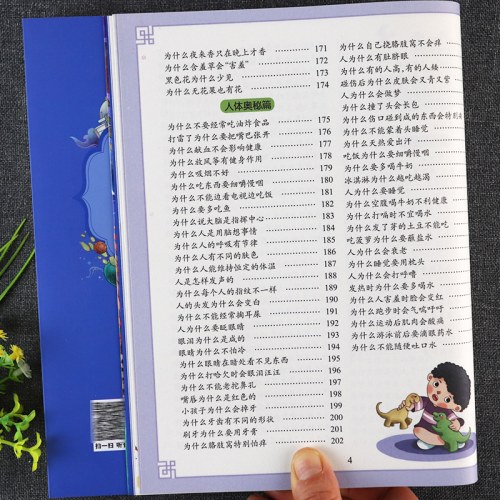 为什么夜来香只在晚上才香 171
为什么含羞草会“害羞” 172
黑色花为什么少见 173
为什么无花果也有花 174
人体奥秘篇
为什么不要经常吃油炸食品 175
打雷了为什么要把嘴巴张开 176
为什么献血不会影响健康 177
为什么放风筝有健身作用 178
为什么吸烟不好 179
为什么吃东西要细嚼慢咽 180
为什么不能边看电视边吃饭 181
为什么要多吃鱼 182
为什么说大脑是指挥中心 183
为什么人是用脑想事情 184
为什么人的呼吸有节律 185
为什么人有不同的肤色 186
为什么人能维持恒定的体温 187
人是怎样发声的 188
为什么每个人的指纹不一样 189
人的头发为什么会变白 190
为什么不能经常掏耳屎 191
人为什么要眨眼睛 192
眼泪为什么是咸的 193
眼睛为什么不怕冷 194
为什么眼睛在暗处看不见东西 195
为什么打哈欠时会眼泪汪汪 196
为什么不能老挖鼻孔 197
嘴唇为什么是红色的 198
小孩子为什么会掉牙 199
为什么牙齿有不同的形状 200
刷牙为什么要用牙膏 201
为什么胳肢窝特别怕痒 202
为什么自己挠胳肢窝不会痒
人为什么有肚脐眼
为什么有的人高,有的人矮
碰伤后为什么皮肤会又青又紫
人为什么会做梦
为什么撞了头会长包
为什么伤口碰到咸的东西会特别
为什么不能蒙着头睡觉
为什么天热爱出汗
吃饭为什么要细嚼慢咽
为什么要多喝牛奶
冰淇淋为什么越吃越渴
人为什么要睡觉
为什么空腹喝牛奶不利健康
为什么打嗝时不宜喝水
为什么发了芽的土豆不能吃
吃菠萝为什么要蘸盐水
人为什么会衰老
为什么睡觉要用枕头
人为什么会打呼噜
发热时为什么要多喝水
为什么人害羞时脸会变红
为什么跑步时会气喘吁吁
为什么运动后肌肉会酸痛
为什么游泳前后要滴眼药水
为什么不能随便吐口水
4
扫一扫 听